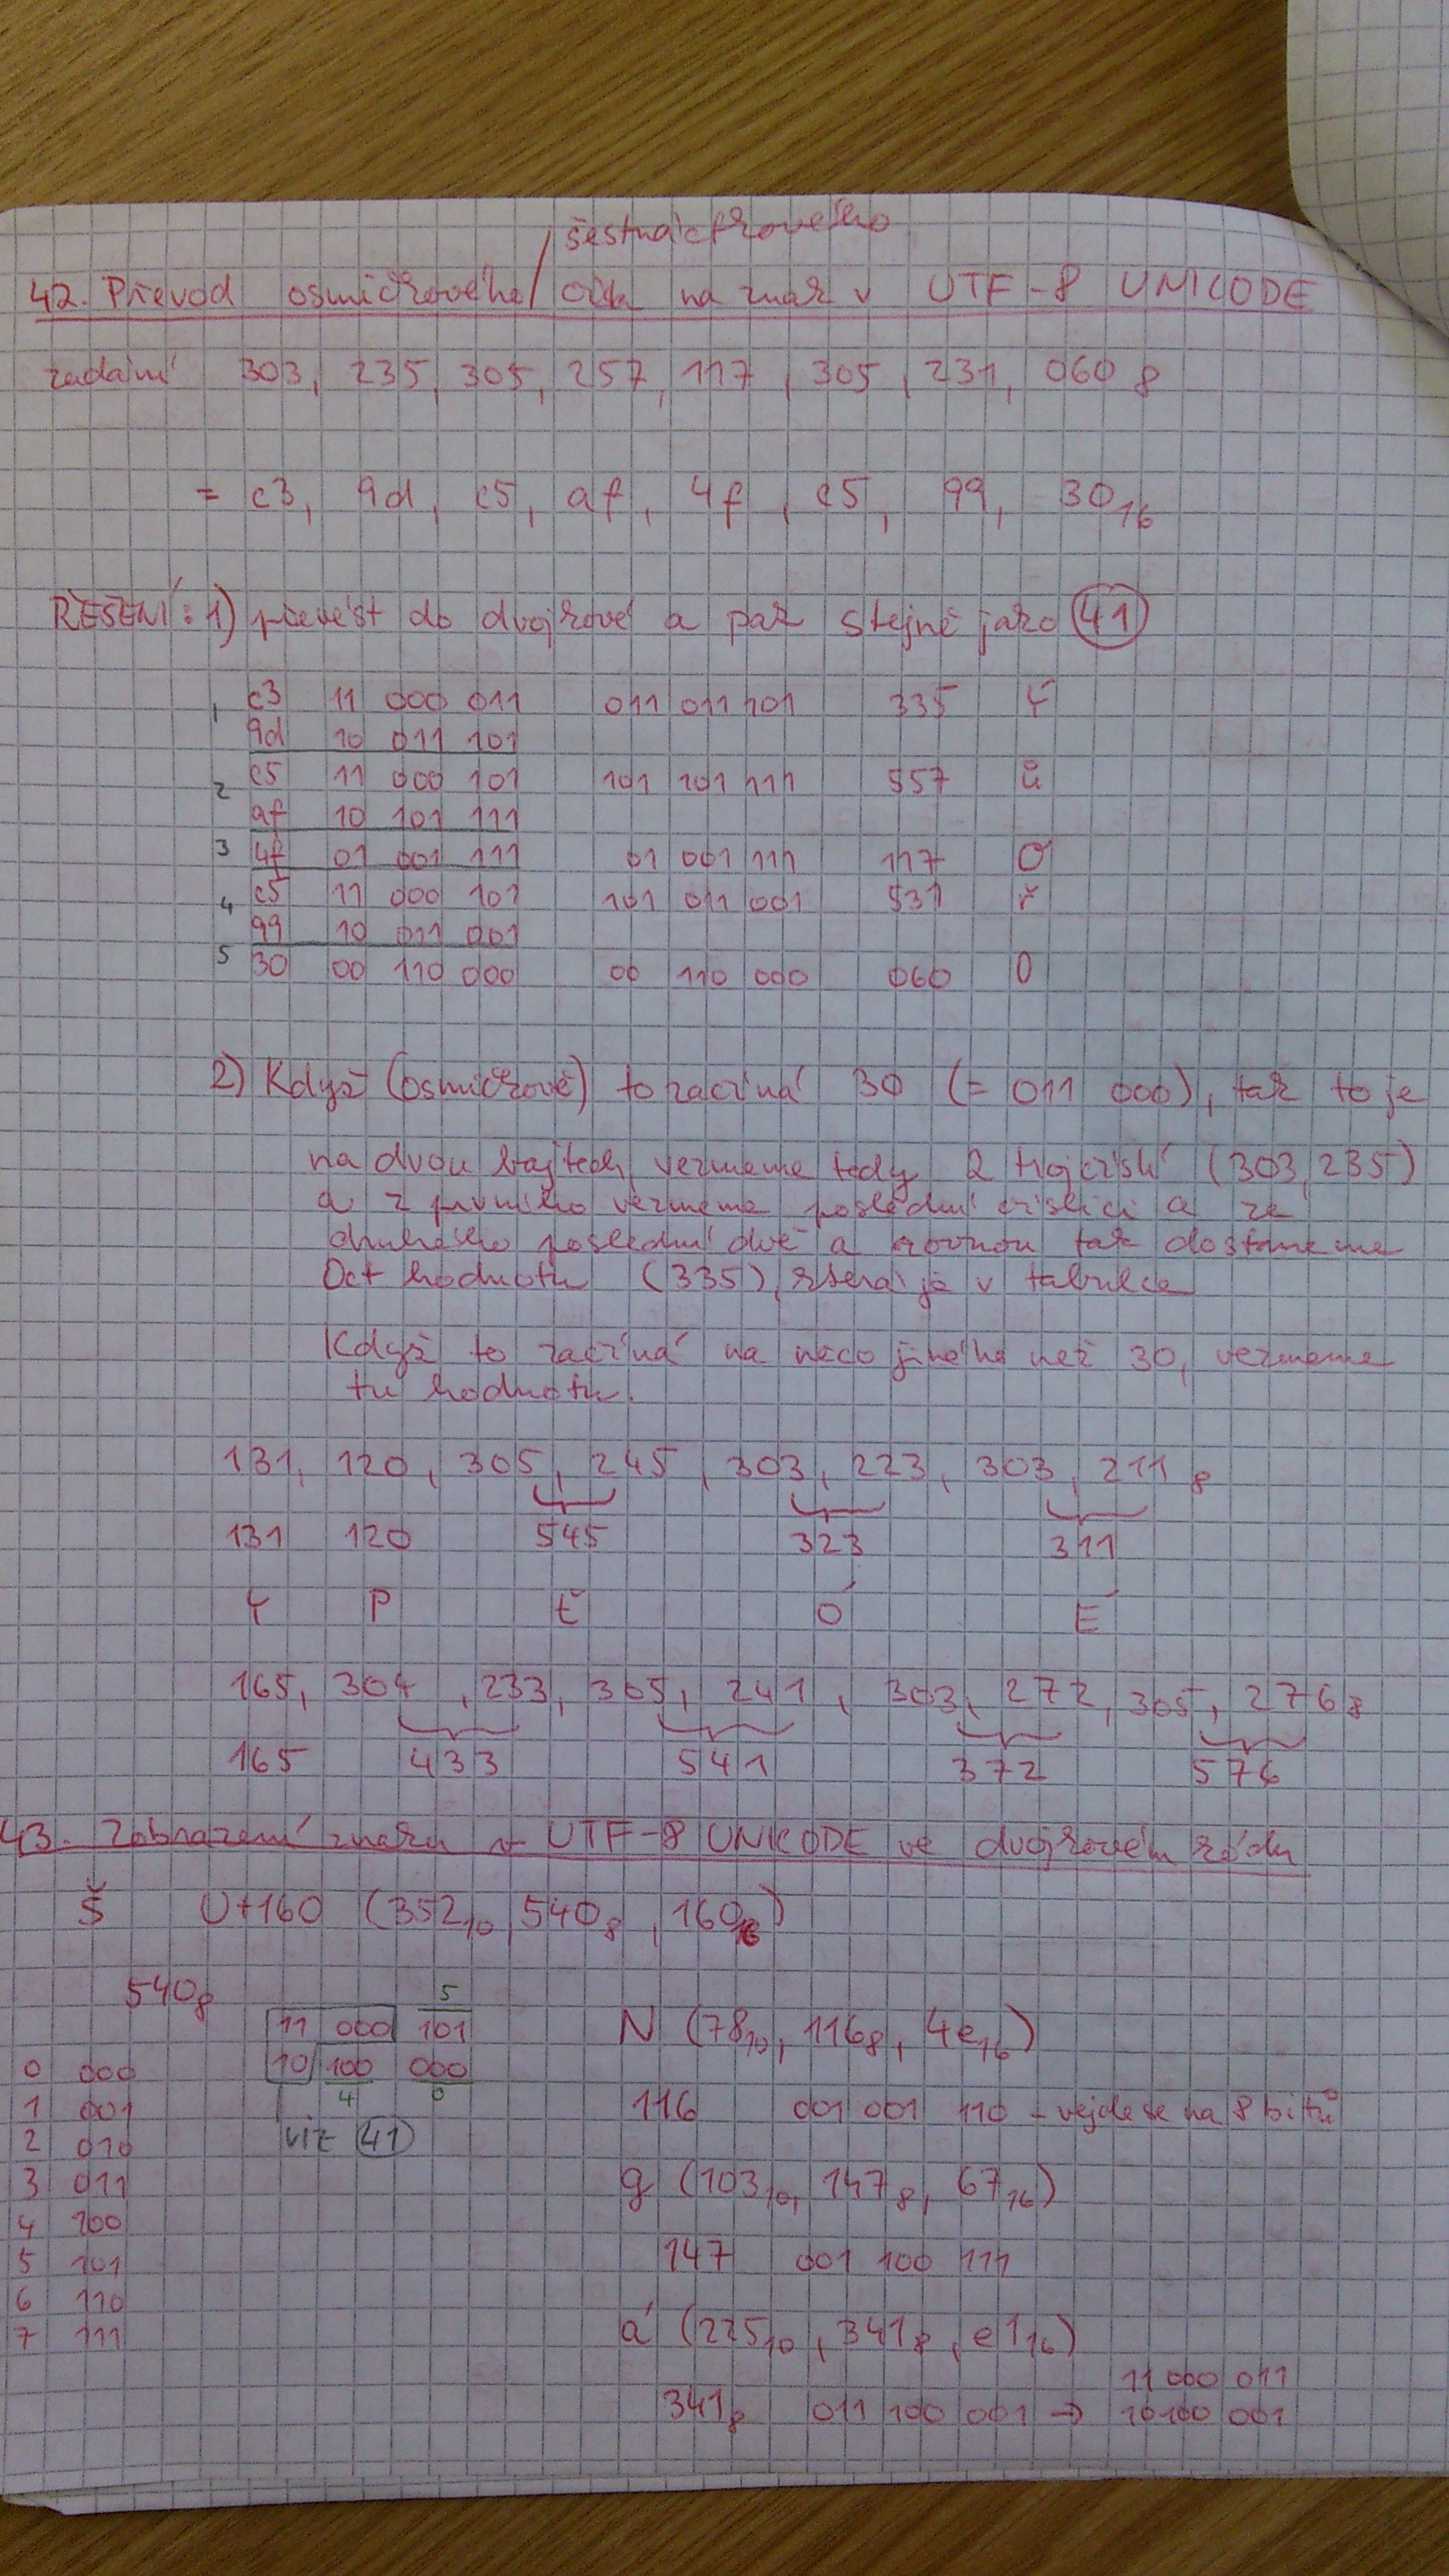 šestnáctkového
42. Převod osmičkového / čísla na znak v UTF-8 UNICODE
zadání 303, 235, 305, 257, 117, 305, 231, 060 8
= c3, 9d, c5, af, 4f, c5, 99, 30 16
ŘEŠENÍ: 1) převést do dvojkové a pak stejně jako 41
1 c3 11 000 011 011 011 101 335 Ý
9d 10 011 101
2 c5 11 000 101 101 101 111 557 ů
af 10 101 111
3 4f 01 001 111 01 001 111 117 O
4 c5 11 000 101 101 011 001 531 ř
99 10 011 001
5 30 00 110 000 00 110 000 060 0
2) Když (osmičkově) to začíná 30 (= 011 000), tak to je
na dvou bajtech, vezmeme tedy 2 trojčíslí (303, 235)
a z prvního vezmeme poslední číslici a ze
druhého poslední dvě a rovnou tak dostaneme
Oct hodnotu (335), která je v tabulce
Když to začíná na něco jiného než 30, vezmeme
tu hodnotu.
131, 120, 305, 245, 303, 223, 303, 211 8
131 120 545 323 311
Y P ť Ó É
165, 304, 233, 305, 241, 303, 272, 305, 276 8
165 433 541 372 576
43. Zobrazení znaku v UTF-8 UNICODE ve dvojkovém kódu
Š U+160 (352 10, 540 8, 160 16)
540 8
5
11 000 101
10 100 000
4 0
viz 41
0 000
1 001
2 010
3 011
4 100
5 101
6 110
7 111
N (78 10, 116 8, 4e 16)
116 001 001 110 - vejde se na 8 bitů
g (103 10, 147 8, 67 16)
147 001 100 111
á (225 10, 341 8, e1 16)
11 000 011
341 8 011 100 001 → 10 100 001